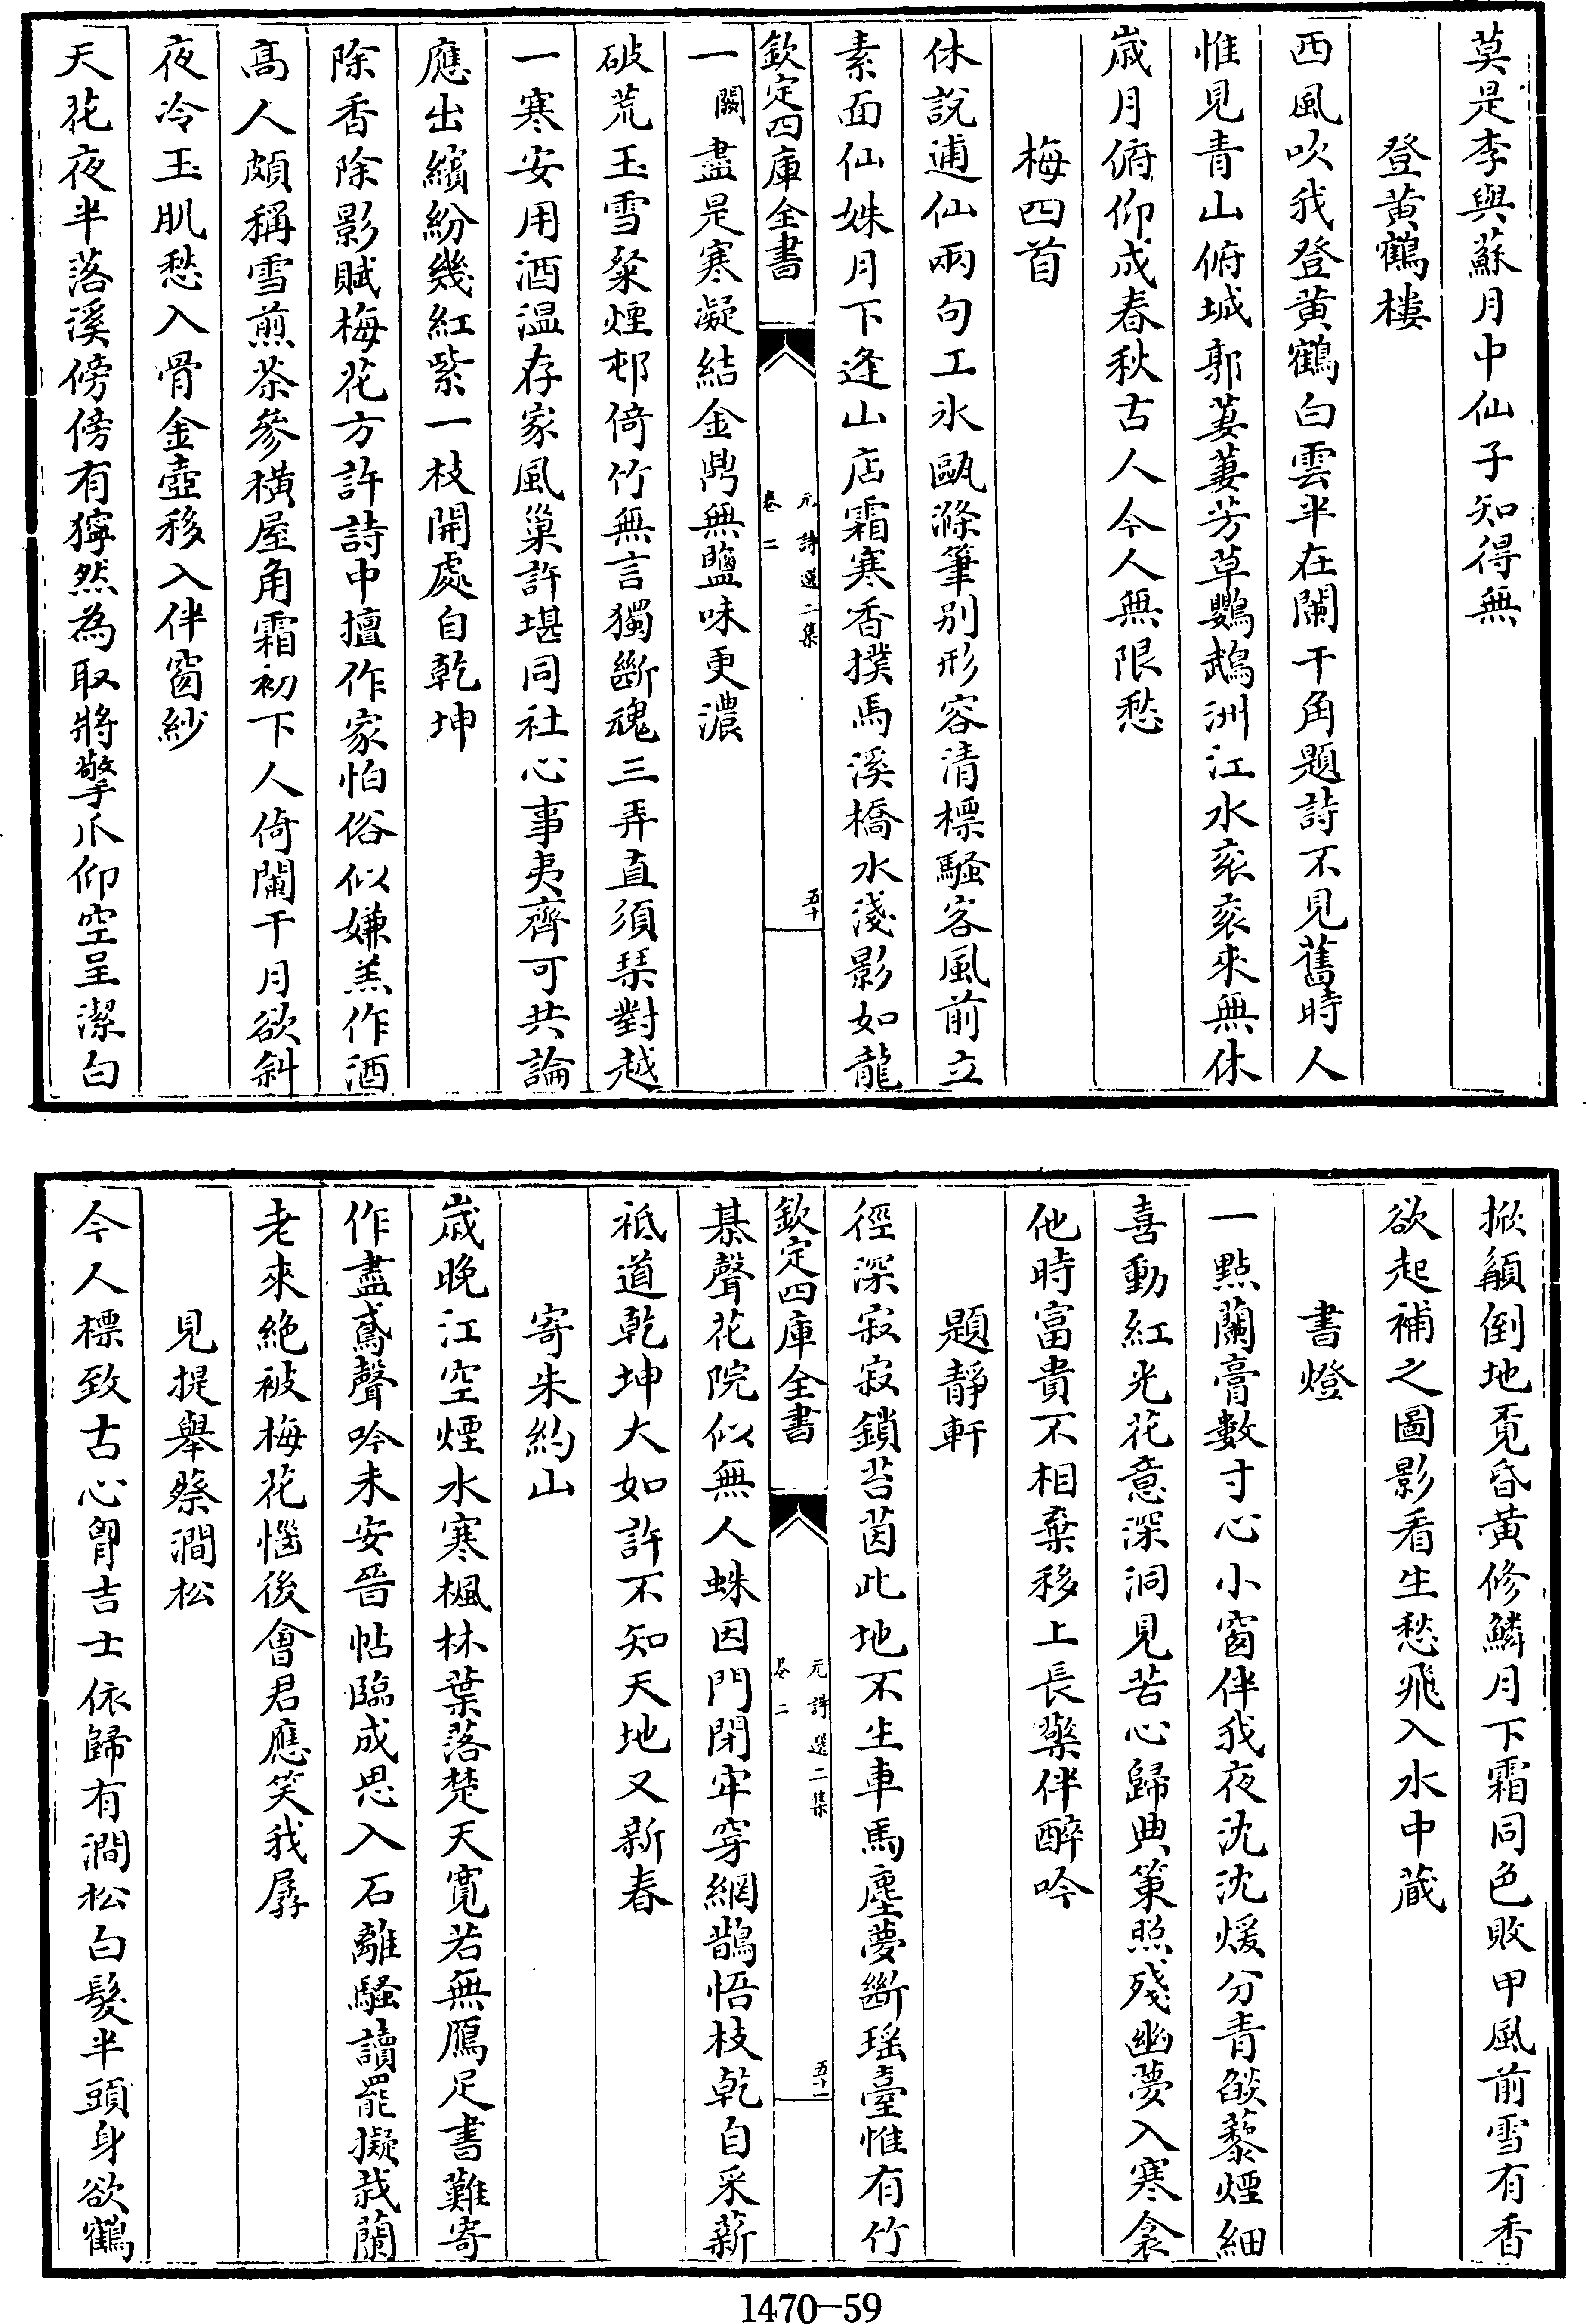 莫是李與蘇月中仙子知得無
登黄鶴樓
西風吹我登黄鶴白雲半在闌干角題詩不見舊時人
惟見青山俯城郭萋萋芳草鸚鵡洲江水衮衮來無休
歳月俯仰成春秋古人今人無限愁
梅四首
休說逋仙兩句工氷甌滌筆别形容清標騷客風前立
素面仙姝月下逢山店霜寒香撲馬溪橋水淺影如龍
欽定四庫全書
元詩選二集
卷二
五十
一闕盡是寒凝結金鼎無鹽味更濃
破荒玉雪粲煙邨倚竹無言獨斷魂三弄直須琹對越
一寒安用酒温存家風巢許堪同社心事夷齊可共論
應出繽紛幾紅紫一枝開處自乾坤
除香除影賦梅花方許詩中擅作家怕俗似嫌羔作酒
高人頗稱雪煎茶參横屋角霜初下人倚闌干月欲斜
夜冷玉肌愁入骨金壺移入伴窗紗
天花夜半落溪傍傍有獰然為取將擎爪仰空呈潔白
掀顱倒地覔昏黄修鱗月下霜同色敗甲風前雪有香
欲起補之圖影看生愁飛入水中蔵
書燈
一點蘭膏數寸心小窗伴我夜沈沈煖分青燄藜煙細
喜動紅光花意深洞見苦心歸典策照殘幽夢入寒衾
他時富貴不相棄移上長檠伴醉吟
題靜軒
徑深寂寂鎖苔茵此地不生車馬塵夢斷瑶臺惟有竹
欽定四庫全書
元詩選二集
卷二
五十一
棊聲花院似無人蛛因門閉牢穿網鵲悟枝乾自采薪
祗道乾坤大如許不知天地又新春
寄朱約山
歳晚江空煙水寒楓林葉落楚天寛若無鴈足書難寄
作盡鳶聲吟未安晉帖臨成思入石離騷讀罷擬栽蘭
老來絶被梅花惱後會君應笑我孱
見提舉蔡澗松
今人標致古心胷吉士依歸有澗松白髮半頭身欲鶴
1470—59